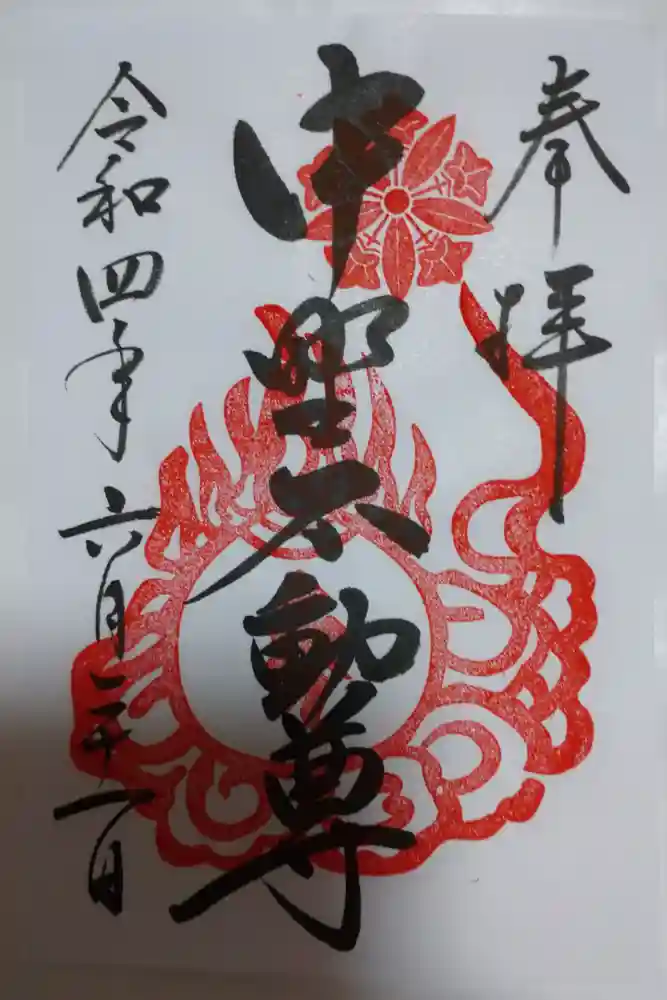 奉拝
中野不動尊
令和四年六月二十一日